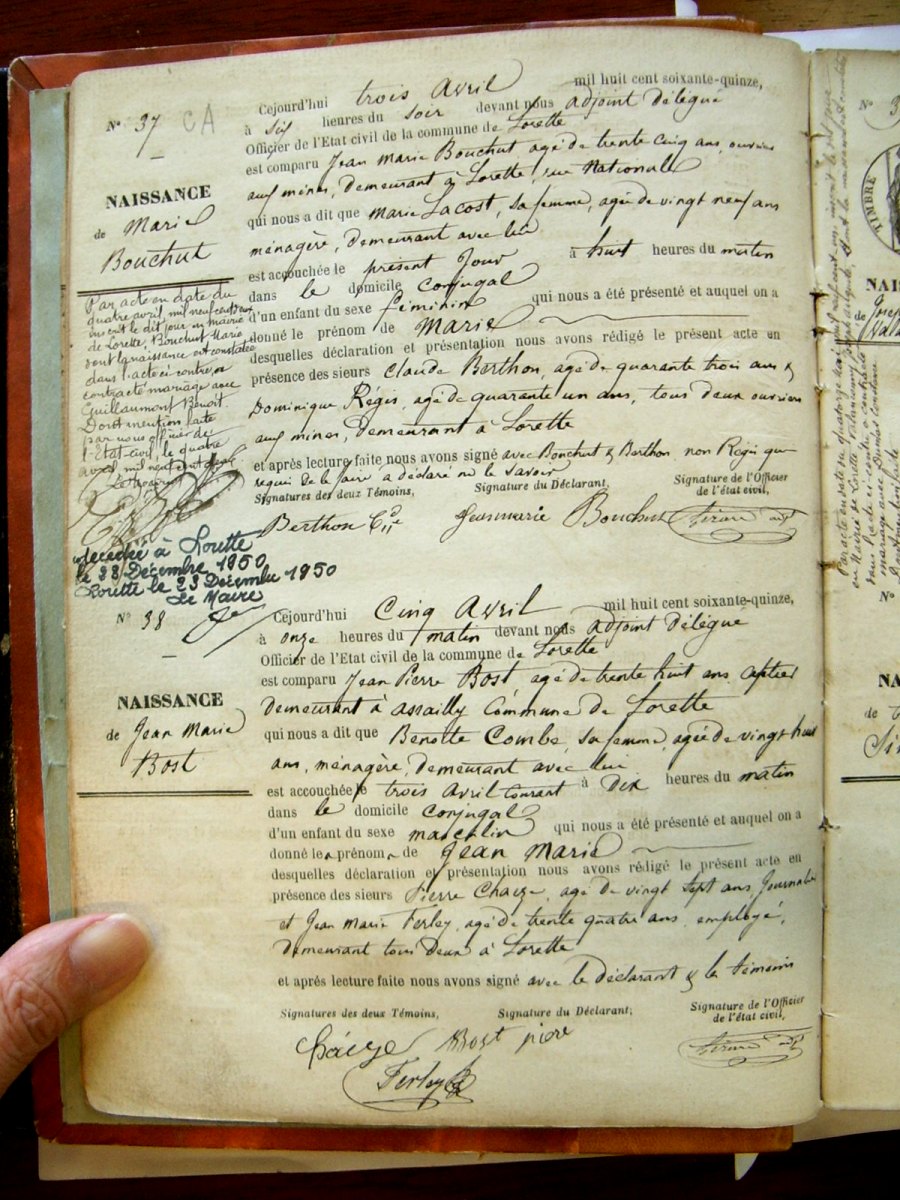 N° 37 CA
NAISSANCE
de Marie
Bouchut
Cejourd'hui trois Avril mil huit cent soixante-quinze,
à six heures du soir devant nous adjoint délégué
Officier de l'Etat civil de la commune de Lorette
est comparu Jean Marie Bouchut agé de trente cinq ans, ouvrier
aux mines, demeurant à Lorette, rue Nationale
qui nous a dit que Marie Lacost, sa femme, agée de vingt neuf ans
ménagère, demeurant avec lui
est accouchée le présent jour à huit heures du matin
dans le domicile conjugal
d'un enfant du sexe féminin qui nous a été présenté et auquel on a
donné le prénom de Marie
desquelles déclaration et présentation nous avons rédigé le présent acte en
présence des sieurs Claude Berthon, agé de quarante trois ans &
Dominique Régis, agé de quarante un ans, tous deux ouvriers
aux mines, demeurant à Lorette
et après lecture faite nous avons signé avec Bouchut & Berthon non Régis qui
requis de le faire a déclaré ne le savoir
Signatures des deux Témoins, Signature du Déclarant, Signature de l'Officier
de l'état civil,
Berthon Jeanmarie Bouchut
Par acte en date du
quatre avril, mil neuf cent
inscrit le dit jour en mairie
de Lorette, Bouchut Marie
dont la naissance est constatée
dans l'acte ci-contre, a
contracté mariage avec
Guillaumont Benoit.
Dont mention faite
par nous officier de
l'Etat-civil, le quatre
avril mil neuf cent
décédée à Lorette
le 23 Décembre 1950
Lorette le 23 Décembre 1950
Le Maire
N° 38
NAISSANCE
de Jean Marie
Bost
Cejourd'hui Cinq Avril mil huit cent soixante-quinze,
à onze heures du matin devant nous adjoint délégué
Officier de l'Etat civil de la commune de Lorette
est comparu Jean Pierre Bost agé de trente huit ans
demeurant à Assailly Commune de Lorette
qui nous a dit que Benotte Combe, sa femme, agée de vingt huit
ans, ménagère, demeurant avec lui
est accouchée le trois Avril courant à dix heures du matin
dans le domicile conjugal
d'un enfant du sexe masculin qui nous a été présenté et auquel on a
donné le prénom de Jean Marie
desquelles déclaration et présentation nous avons rédigé le présent acte en
présence des sieurs Pierre Chaize, agé de vingt sept ans, Journalier
et Jean Marie Ferley, agé de trente quatre ans employé,
demeurant tous deux à Lorette
et après lecture faite nous avons signé avec le déclarant & les témoins
Signatures des deux Témoins, Signature du Déclarant, Signature de l'Officier
de l'état civil,
Chaize Bost pière
Ferley
N°
TIMBRE
de
N°
de